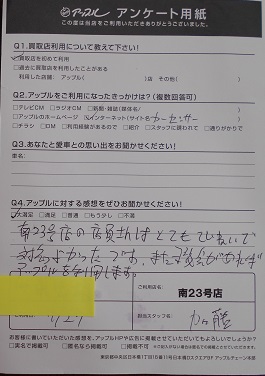 アップル アンケート用紙
この度は当店をご利用いただきありがとうございました。
Q1.買取店利用について教えて下さい!
□買取店を初めて利用
□過去に買取店を利用したことがある
利用した店舗: アップル( )店 その他( )
Q2.アップルをご利用になったきっかけは?(複数回答可)
□テレビCM □ラジオCM □新聞・雑誌(媒体名/ )
□アップルのホームページ □インターネット(サイト名/カーセンサー )
□チラシ □DM □利用経験があるので □紹介 □スタッフに誘われて □通りがかりで
Q3.あなたと愛車との思い出をお聞かせください!
車名:
Q4.アップルに対する感想をぜひお聞かせください!
□大満足 □満足 □普通 □もう少し □不満
南23号店の店員さんはとてもていねいで
対応よかったです。また機会があれば
アップルを利用します。
ご利用店名
南23号店
担当スタッフ名
加藤
お客様に書いていただいた感想を、アップルHPや広告に掲載させていただいてもよろしいでしょうか?
□実名で掲載可 □匿名なら掲載可 □掲載不可